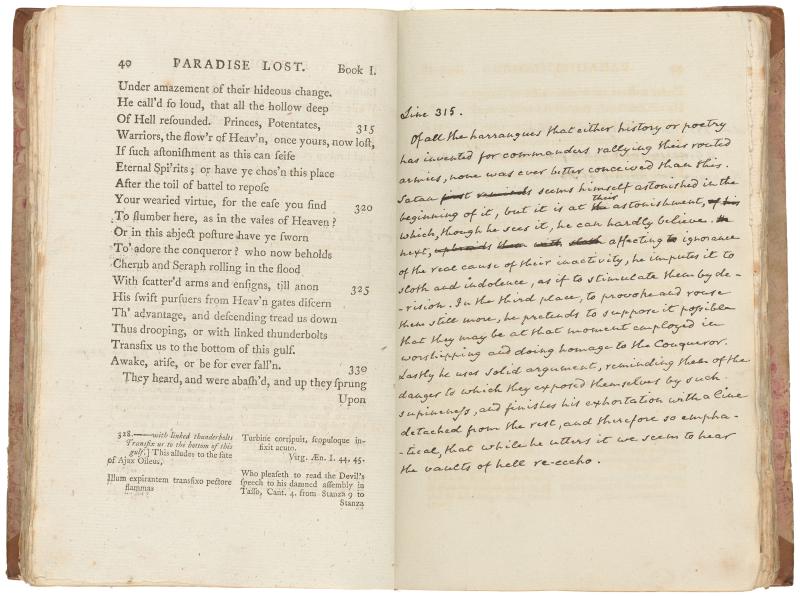 40 PARADISE LOST. Book I.
Under amazement of their hideous change.
He call'd ſo loud, that all the hollow deep
Of Hell reſounded. Princes, Potentates, 315
Warriors, the flow'r of Heav'n, once yours, now loſt,
If ſuch aſtoniſhment as this can ſeiſe
Eternal Spi'rits; or have ye chos'n this place
After the toil of battel to repoſe
Your wearied virtue, for the eaſe you find 320
To ſlumber here, as in the vales of Heaven?
Or in this abject poſture have ye ſworn
To' adore the conqueror? who now beholds
Cherub and Seraph rolling in the flood
With ſcatter'd arms and enſigns, till anon 325
His ſwift purſuers from Heav'n gates diſcern
Th' advantage, and deſcending tread us down
Thus drooping, or with linked thunderbolts
Transfix us to the bottom of this gulf.
Awake, ariſe, or be for ever fall'n. 330
They heard, and were abaſh'd, and up they ſprung
Upon
328.——with linked thunderbolts
Transfix us to the bottom of this
gulf.] This alludes to the fate
of Ajax Oileus,
Illum expirantem transfixo pectore
flammas
Turbine corripuit, ſcopuloque in-
fixit acuto.
Virg. Æn. I. 44, 45.
Who pleaſeth to read the Devil's
ſpeech to his damned aſſembly in
Taſſo, Cant. 4. from Stanza 9 to
Stanza
Line 315.
Of all the harrangues that either history or poetry
has invented for commanders rallying their routed
armies, none was ever better conceived than this.
Satan first reminds seems himself astonished in the
beginning of it, but it is at the their astonishment, of his
which, though he sees it, he can hardly believe. In
next, upbraids them with sloth affecting to ignorance
of the real cause of their inactivity, he imputes it to
sloth and indolence, as if to stimulate them by de-
-rision. In the third place, to provoke and rouse
them still more, he pretends to suppose it possible
that they may be at that moment employed in
worshipping and doing homage to the Conqueror.
Lastly he uses solid argument, reminding them of the
danger to which they exposed themselves by such
supineness, and finishes his exhortation with a line
detached from the rest, and therefore so empha-
-tical, that while he utters it we seem to hear
the vaults of hell re-eccho.